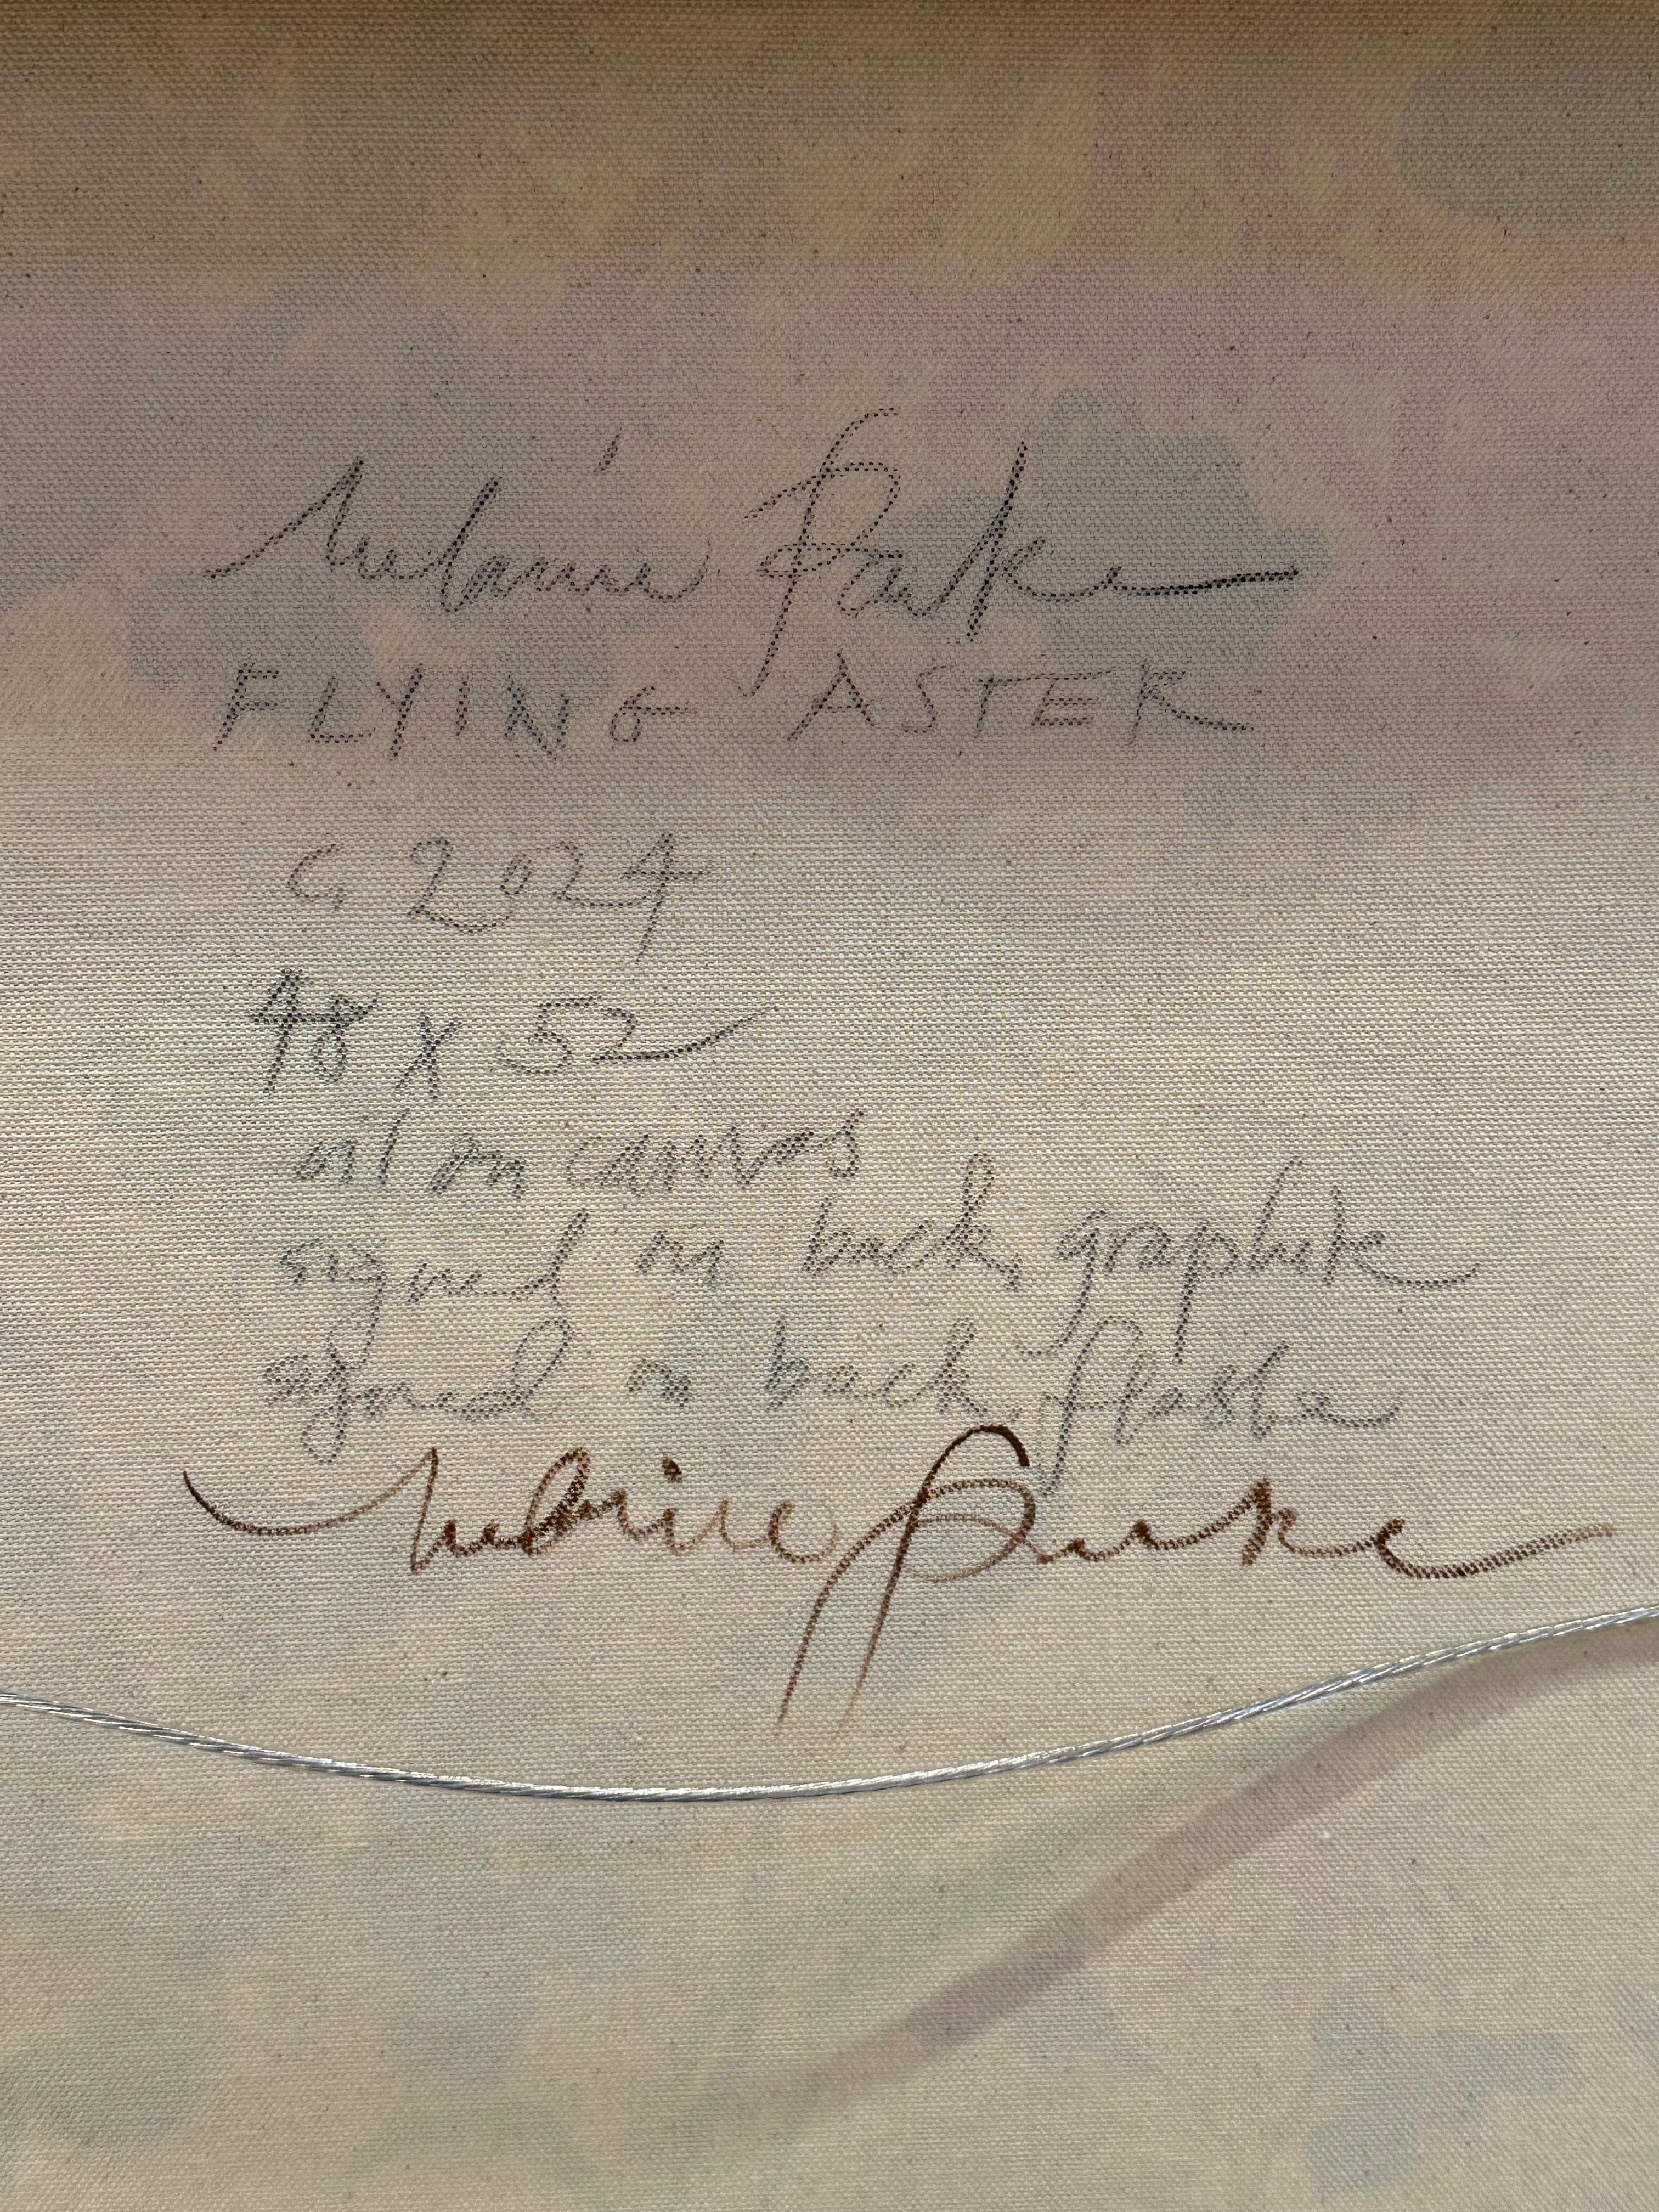 Melanie Parke
FLYING ASTER
c, 2024
48 x 52
oil on canvas
signed on back, graphite
signed on back, flashe
Melanie Parke